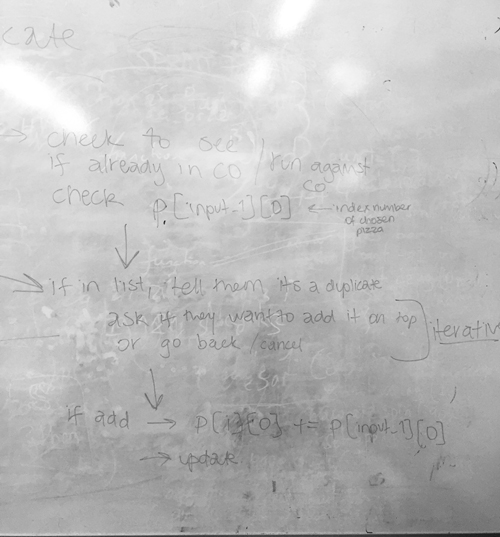 cate
→ check to see
if already in CO / run against
CO
check P[input-1][0] ← index number
of chosen
pizza
if in list, tell them its a duplicate
ask if they want to add it on top
or go back / cancel
iterativ
if add → P[1][0] += P[input-1][0]
→ update